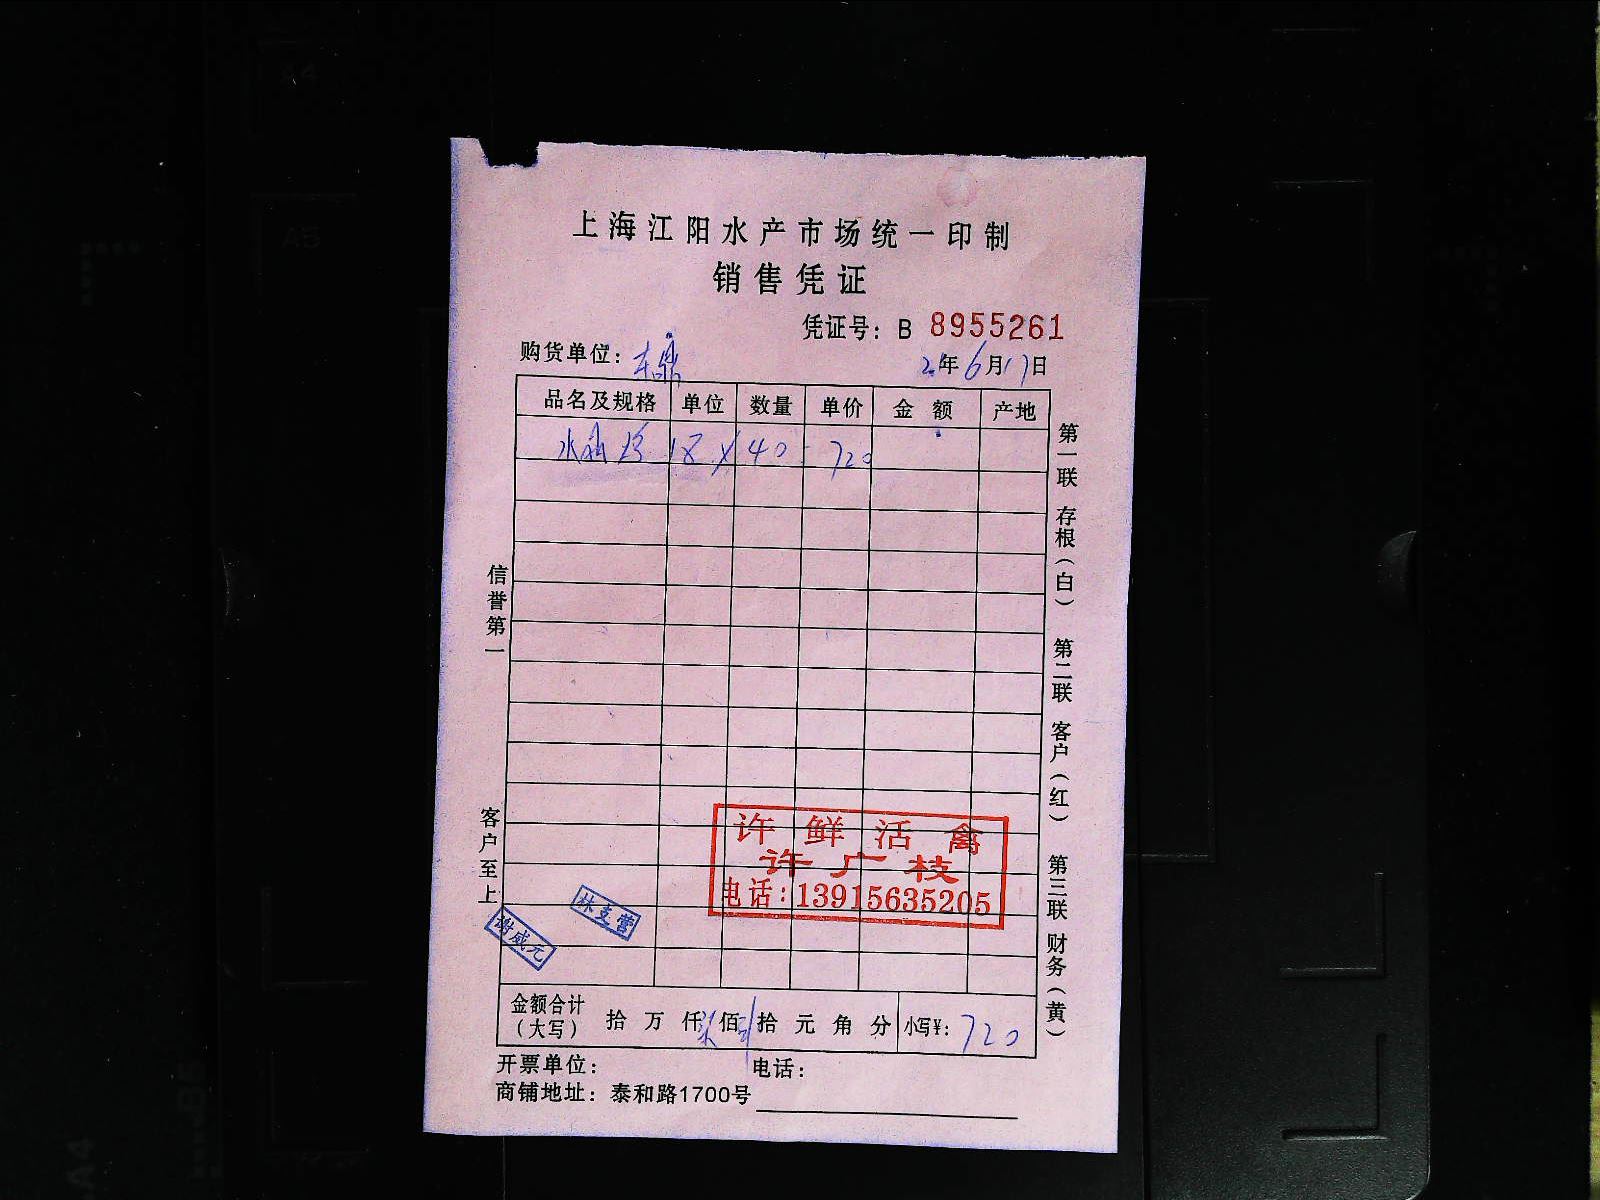 上海江阳水产市场统一印制
销售凭证
凭证号：B 8955261
购货单位：东鼎
2 年 6 月 17 日
品名及规格 单位 数量 单价 金额 产地
水 18 × 40 = 720
信誉第一
客户至上
第一联 存根（白） 第二联 客户（红） 第三联 财务（黄）
许鲜活禽
许广枝
电话：13915635205
林支营
谢咸元
金额合计（大写） 拾 万 仟 柒 佰 贰 拾 元 角 分 小写¥：720
开票单位： 电话：
商铺地址：泰和路1700号